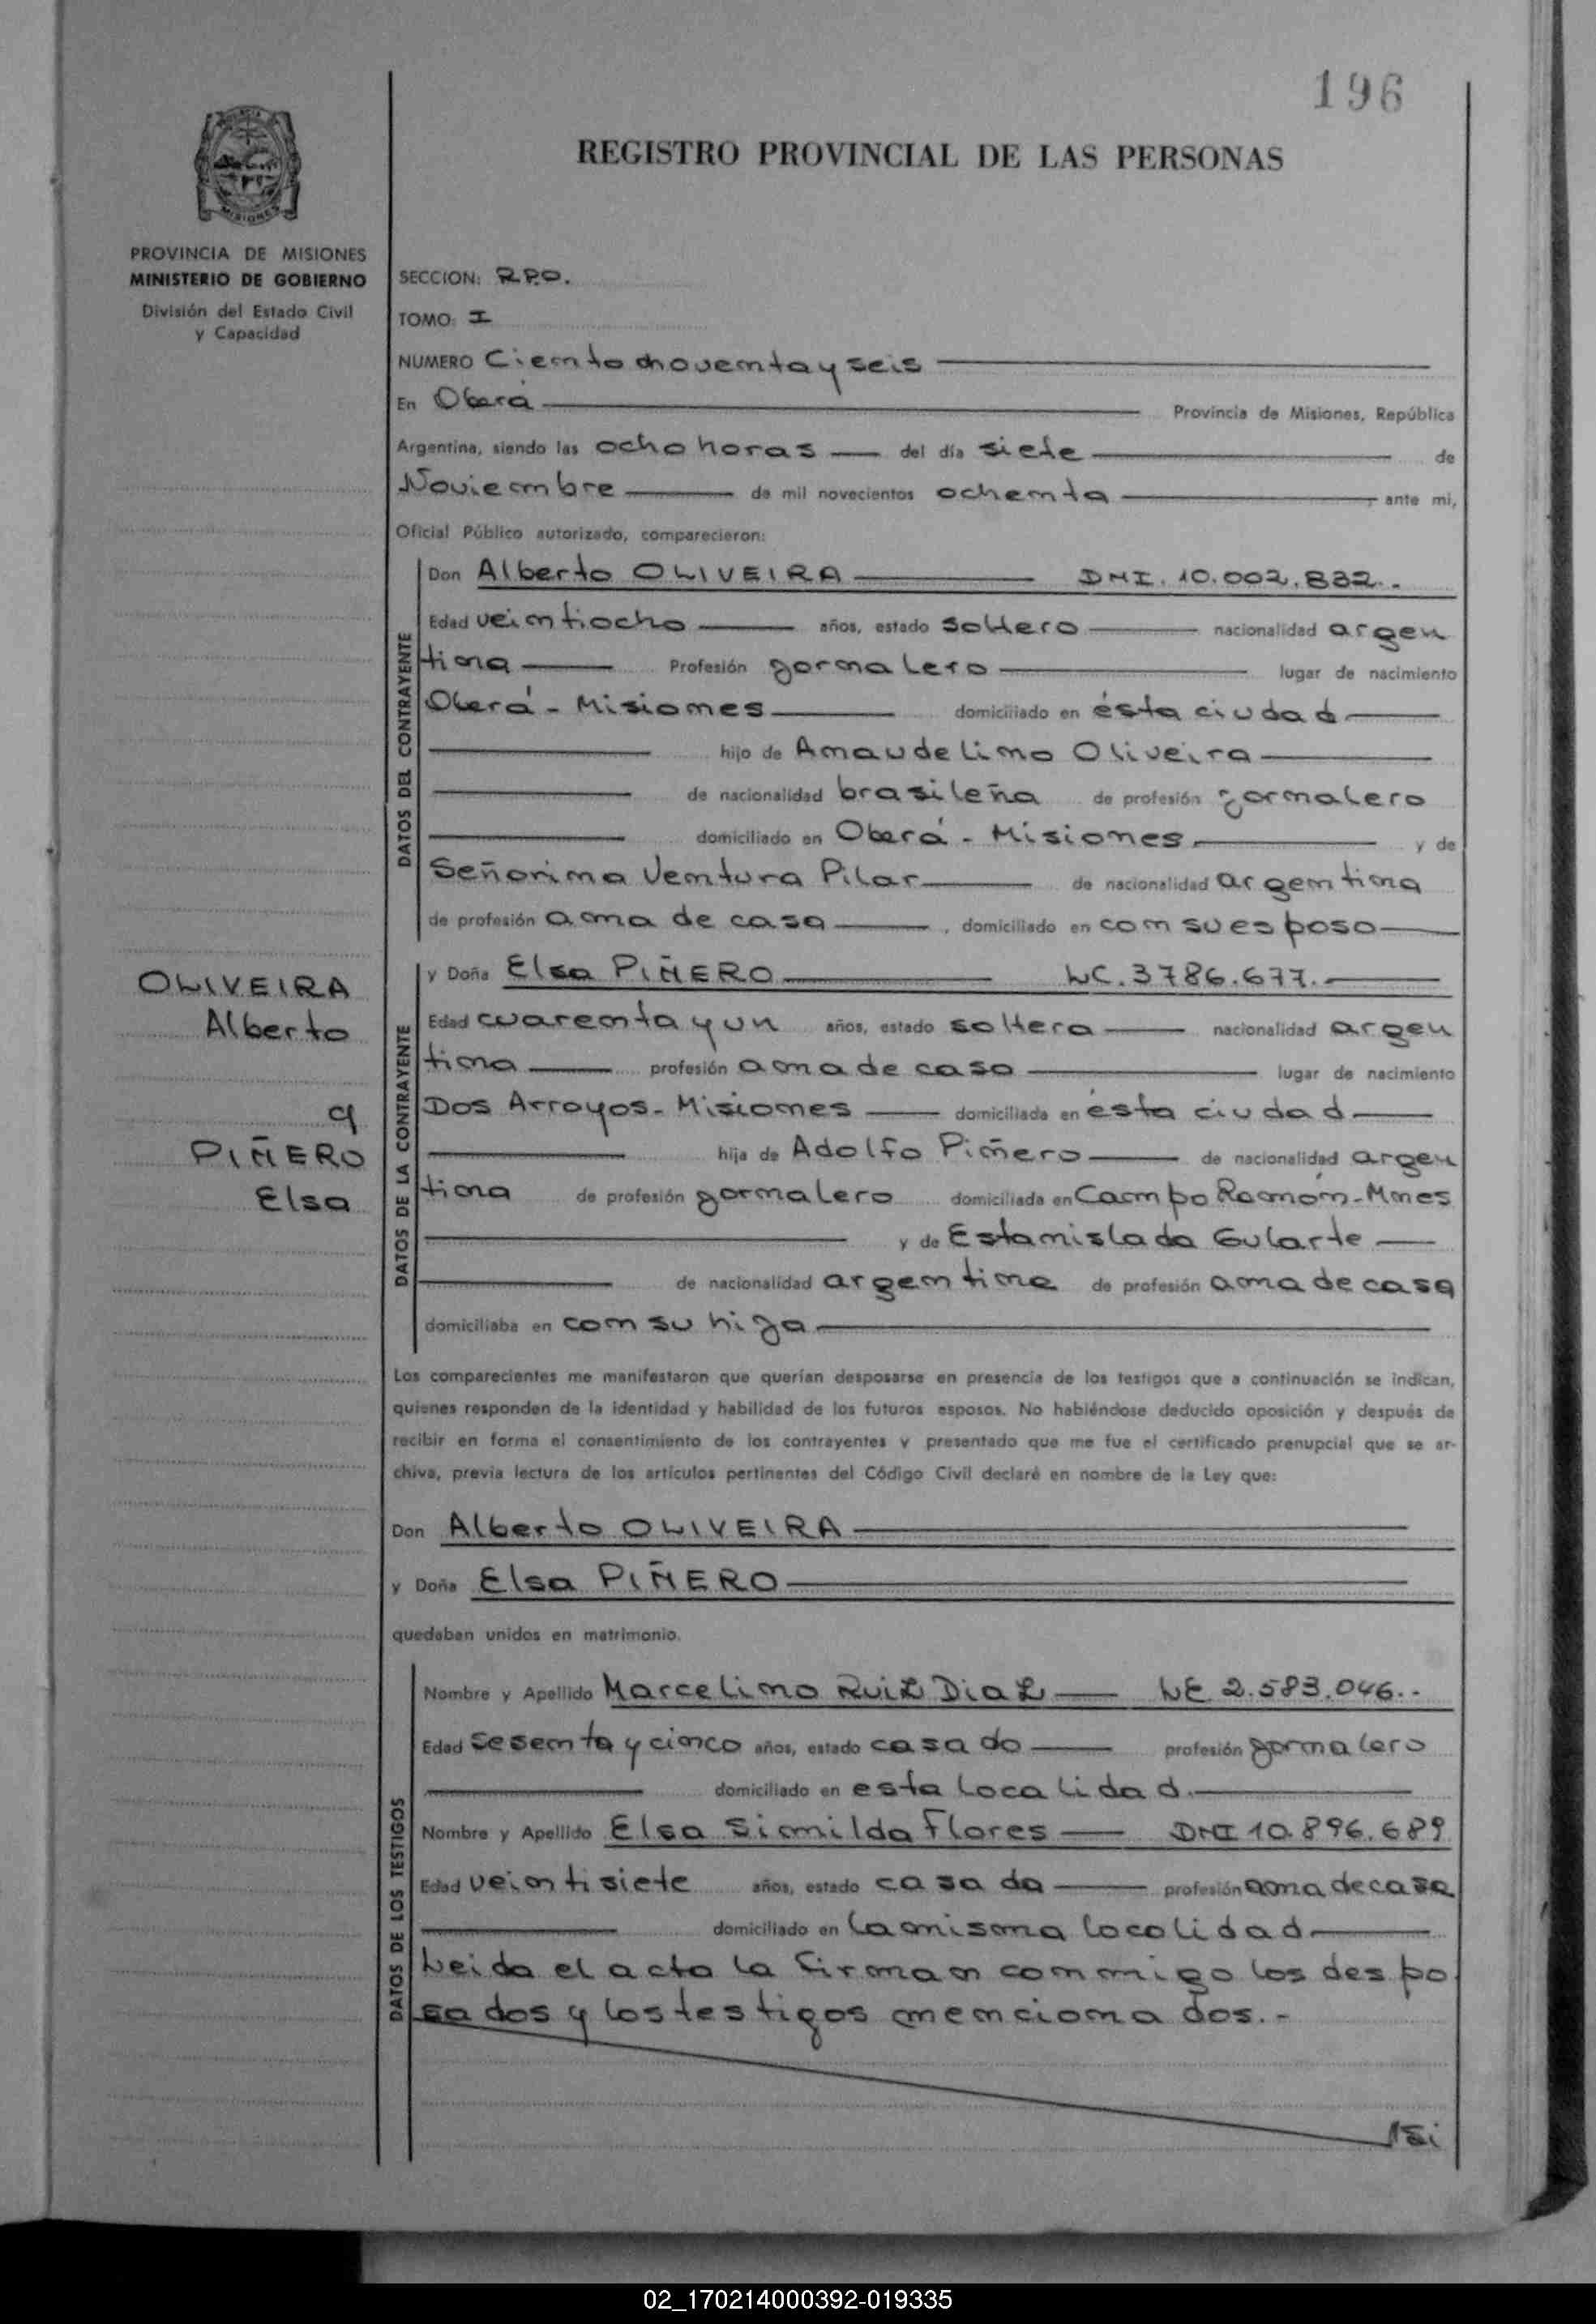 196
REGISTRO PROVINCIAL DE LAS PERSONAS
PROVINCIA DE MISIONES
MINISTERIO DE GOBIERNO
División del Estado Civil
y Capacidad
SECCION: R.P.O.
TOMO: I
NUMERO Ciento noventa y seis
En Oberá Provincia de Misiones, República
Argentina, siendo las ocho horas del día siete de
Noviembre de mil novecientos ochenta ante mi,
Oficial Público autorizado, comparecieron:
DATOS DEL CONTRAYENTE
Don Alberto OLIVEIRA DNI. 10.002.832.-
Edad veintiocho años, estado soltero nacionalidad argen
tina Profesión jornalero lugar de nacimiento
Oberá - Misiones domiciliado en ésta ciudad
hijo de Amaudelino Oliveira
de nacionalidad brasileña de profesión jornalero
domiciliado en Oberá - Misiones y de
Señorina Ventura Pilar de nacionalidad argentina
de profesión ama de casa, domiciliado en con su esposo
OLIVEIRA
Alberto
y
PIÑERO
Elsa
DATOS DE LA CONTRAYENTE
y Doña Elsa PIÑERO LC. 3786.677.-
Edad cuarenta y un años, estado soltera nacionalidad argen
tina profesión ama de casa lugar de nacimiento
Dos Arroyos - Misiones domiciliada en ésta ciudad
hija de Adolfo Piñero de nacionalidad argen
tina de profesión jornalero domiciliada en Campo Ramón - Mnes
y de Estanislada Gularte
de nacionalidad argentina de profesión ama de casa
domiciliaba en con su hija
Los comparecientes me manifestaron que querían desposarse en presencia de los testigos que a continuación se indican,
quienes responden de la identidad y habilidad de los futuros esposos. No habiéndose deducido oposición y después de
recibir en forma el consentimiento de los contrayentes y presentado que me fue el certificado prenupcial que se ar-
chiva, previa lectura de los artículos pertinentes del Código Civil declaré en nombre de la Ley que:
Don Alberto OLIVEIRA
y Doña Elsa PIÑERO
quedaban unidos en matrimonio.
DATOS DE LOS TESTIGOS
Nombre y Apellido Marcelino Ruiz Diaz LE 2.583.046.-
Edad sesenta y cinco años, estado casado profesión jornalero
domiciliado en esta localidad.
Nombre y Apellido Elsa Similda Flores DNI 10.896.689
Edad veintisiete años, estado casada profesión ama de casa
domiciliado en la misma localidad
Leida el acta la firman conmigo los despo
sados y los testigos mencionados.-
02_170214000392-019335